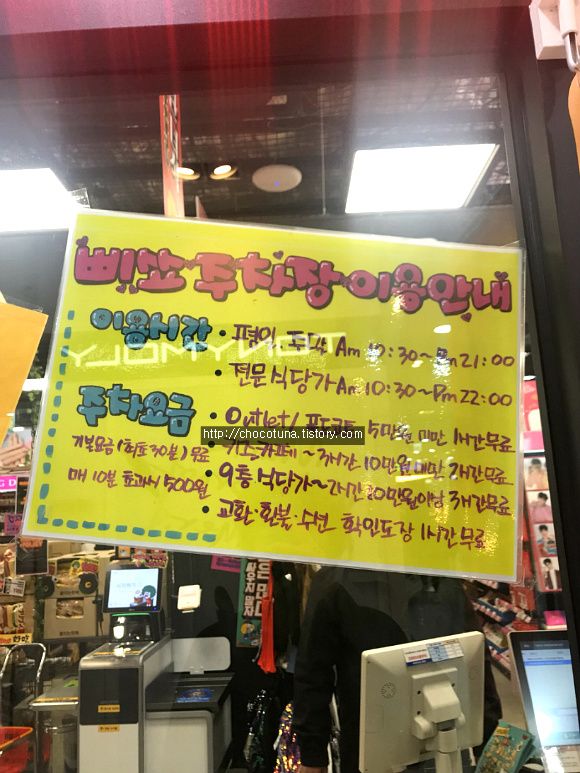 삐쑈 주차장 이용안내
이용시간 • 평일, 주말 Am 10:30~Pm 21:00
TONYMOLY
• 전문식당가 Am 10:30~Pm 22:00
주차요금 • Outlet/ 5만원 미만 1시간 무료
http://chocotuna.tistory.com
기본요금(최초 30분) 무료
~3시간 10만원 미만 2시간 무료
매 10분 초과시 500원
• 9층 식당가~2시간 10만원 이상 3시간 무료
• 교환·환불·수선 확인도장 1시간 무료